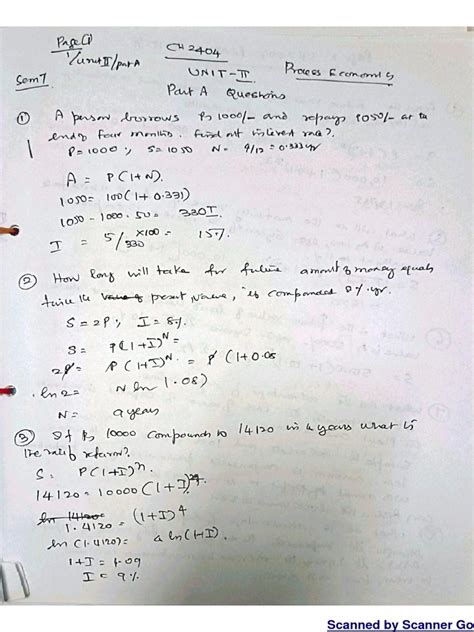 Page(1)
1/unit II/part A
CH2404
Sem 7
UNIT-II
Process Economics
Part A Questions
① A person borrows Rs 1000/- and repays 1050/- at the
end of four months. Find out interest rate?
P=1000; S=1050 N= 4/12=0.333 yr
A = P(1+N).
1050= 100(1+0.331)
1050-1000. 50= 330I.
I = 5/330 ×100= 15%.
② How long will take for future amount of money equals
twice the present value, if compounded 8% yr.
S=2P; I=8%.
S= P(1+I)^N=
2P= P(1+I)^N. = P(1+0.08
ln2= N ln(1.08)
N= 9 years
③ If Rs 10000 compounds to 14120 in 4 years what is
the rate of return?
S= P(1+I)^n.
14120=10000(1+I)
1.4120= (1+I)^4
ln(1.4120)= ln(1+I).
1+I=1.09
I= 9%
Scanned by Scanner Go